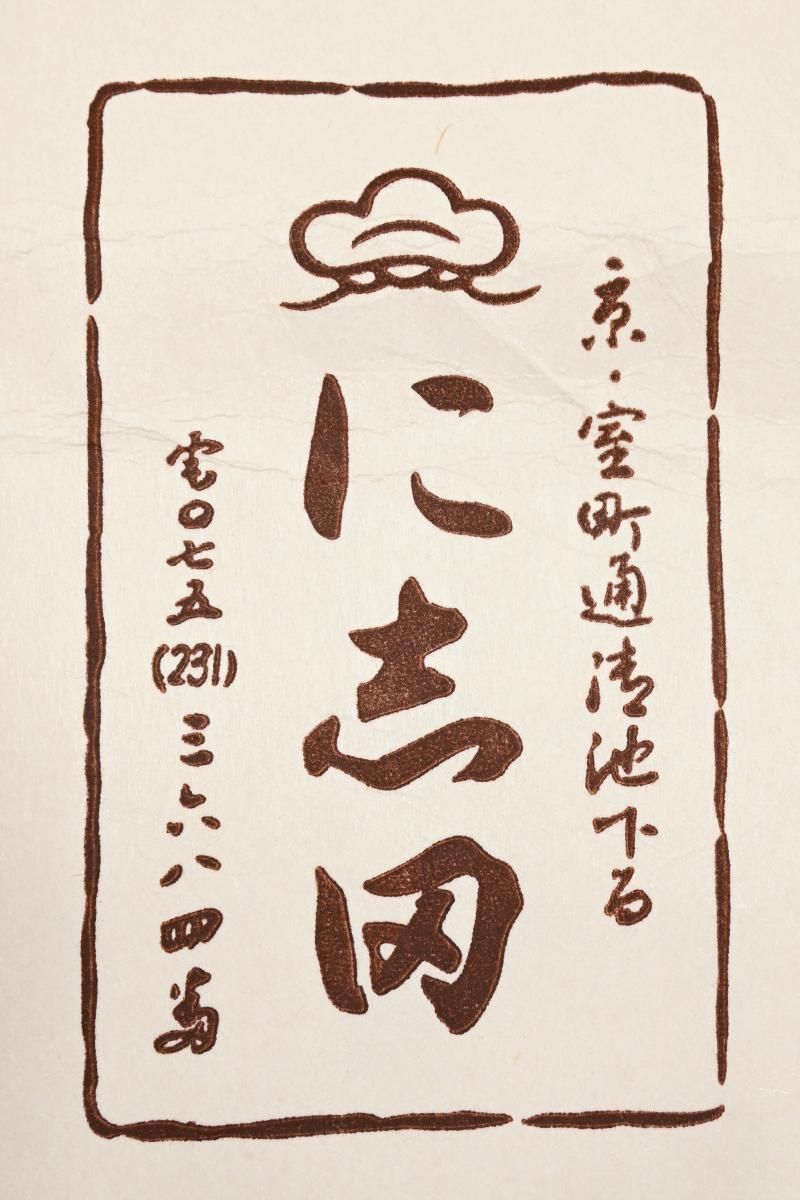 京・室町通清池下る
に志田
電〇七五(231)三六八四番